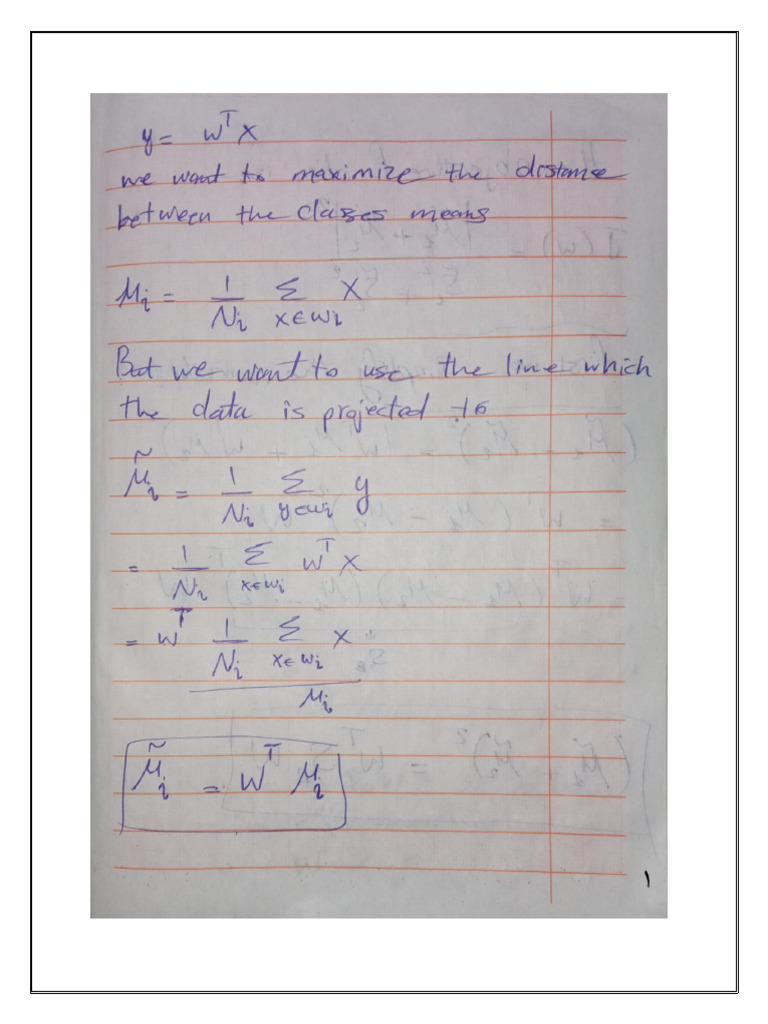 y = w^T x
we want to maximize the distance
between the classes means
μ_i = 1/N_i Σ_{x∈w_i} x
But we want to use the line which
the data is projected to
μ̃_i = 1/N_i Σ_{y∈w_i} y
= 1/N_i Σ_{x∈w_i} w^T x
= w^T 1/N_i Σ_{x∈w_i} x
μ_i
μ̃_i = w^T μ_i
١